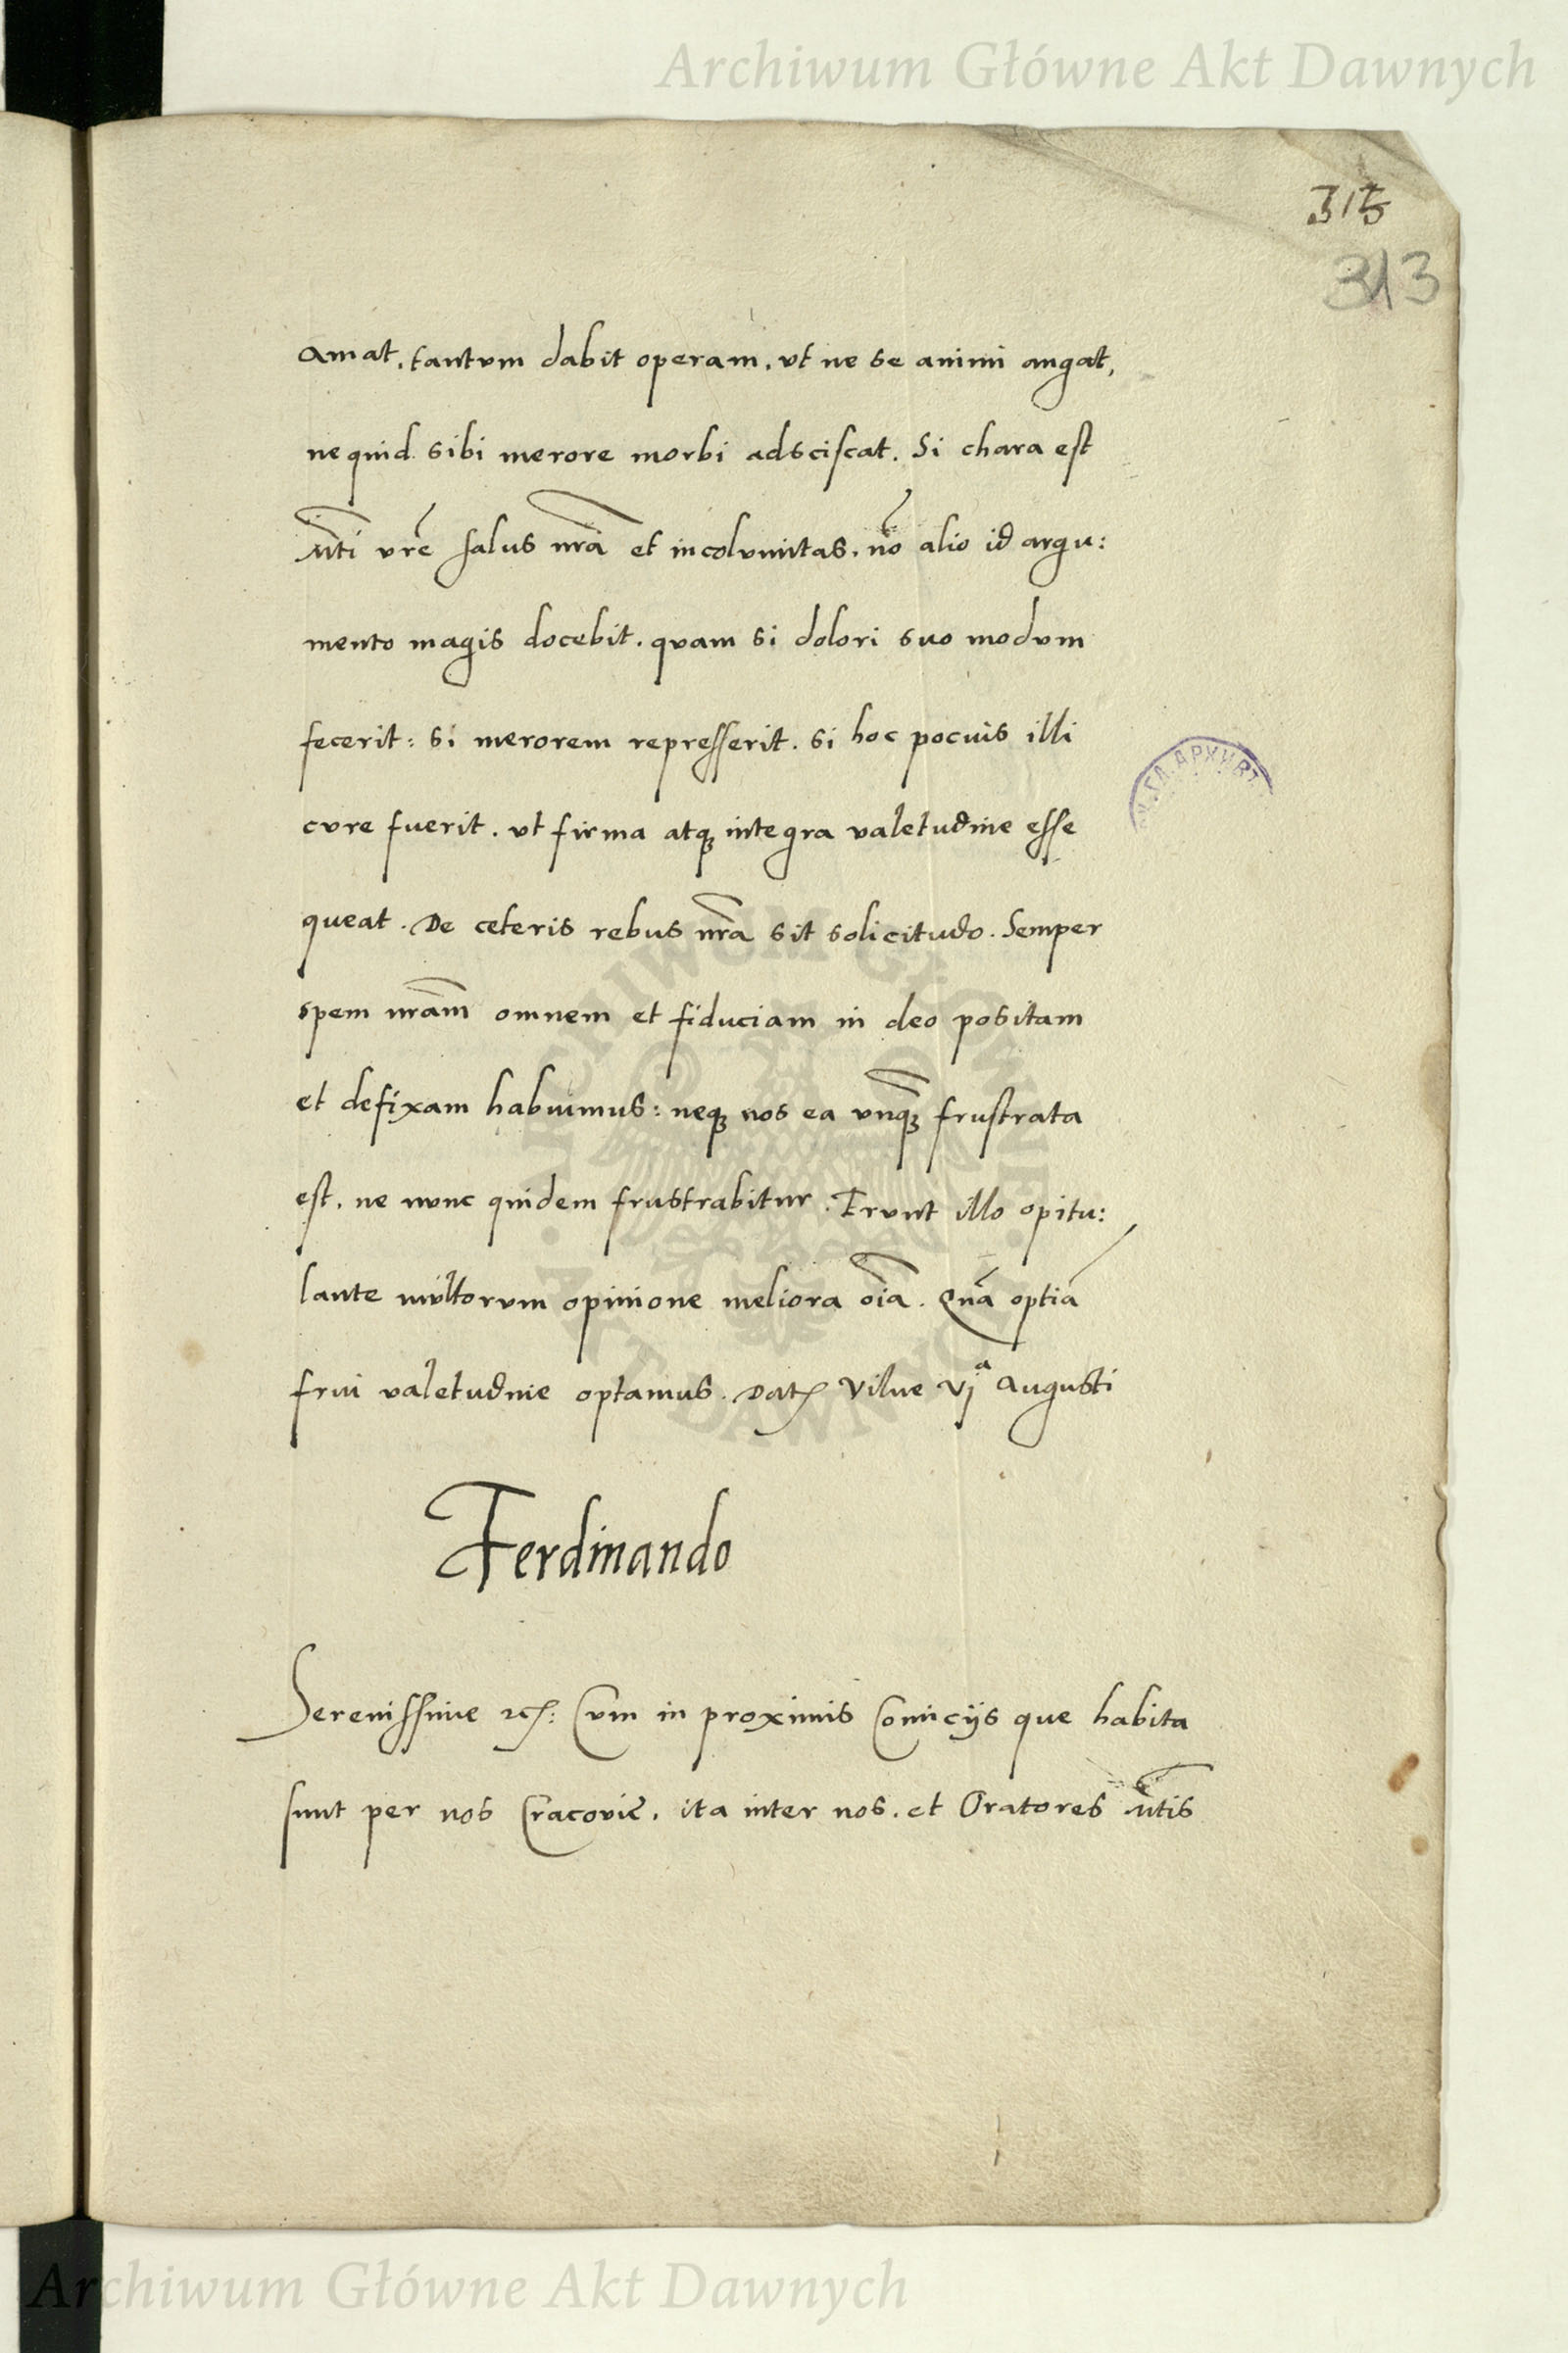 Archiwum Główne Akt Dawnych
315
313
amat, tantvm dabit operam, vt ne se animi angat,
nequid sibi merore morbi adsciscat. Si chara est
Mti vrẽ salus nrã et incolvmitas, nõ alio id argu:
mento magis docebit, qvam si dolori suo modvm
fecerit: si merorem represserit. si hoc pocius illi
cvre fuerit, vt firma atqꝫ integra valetudine esse
queat. De ceteris rebus nrã sit solicitudo. Semper
spem nrãm omnem et fiduciam in deo positam
et defixam habuimus: neqꝫ nos ea vnqꝫ̃ frustrata
est, ne nvnc quidem frustrabitur. Ervnt illo opitu:
lante multorvm opinione meliora oĩa. Quã optiã
frui valetudine optamus. Datꝭ Vilne vjᵃ Augusti
Ferdinando
Serenissime ⁊cꝭ: Cvm in proximis Comicijs que habita
sunt per nos Cracovie, ita inter nos, et Oratores Mtis
ГЛ. АРХИВ
ARCHIWUM GŁÓWNE AKT DAWNYCH
Archiwum Główne Akt Dawnych